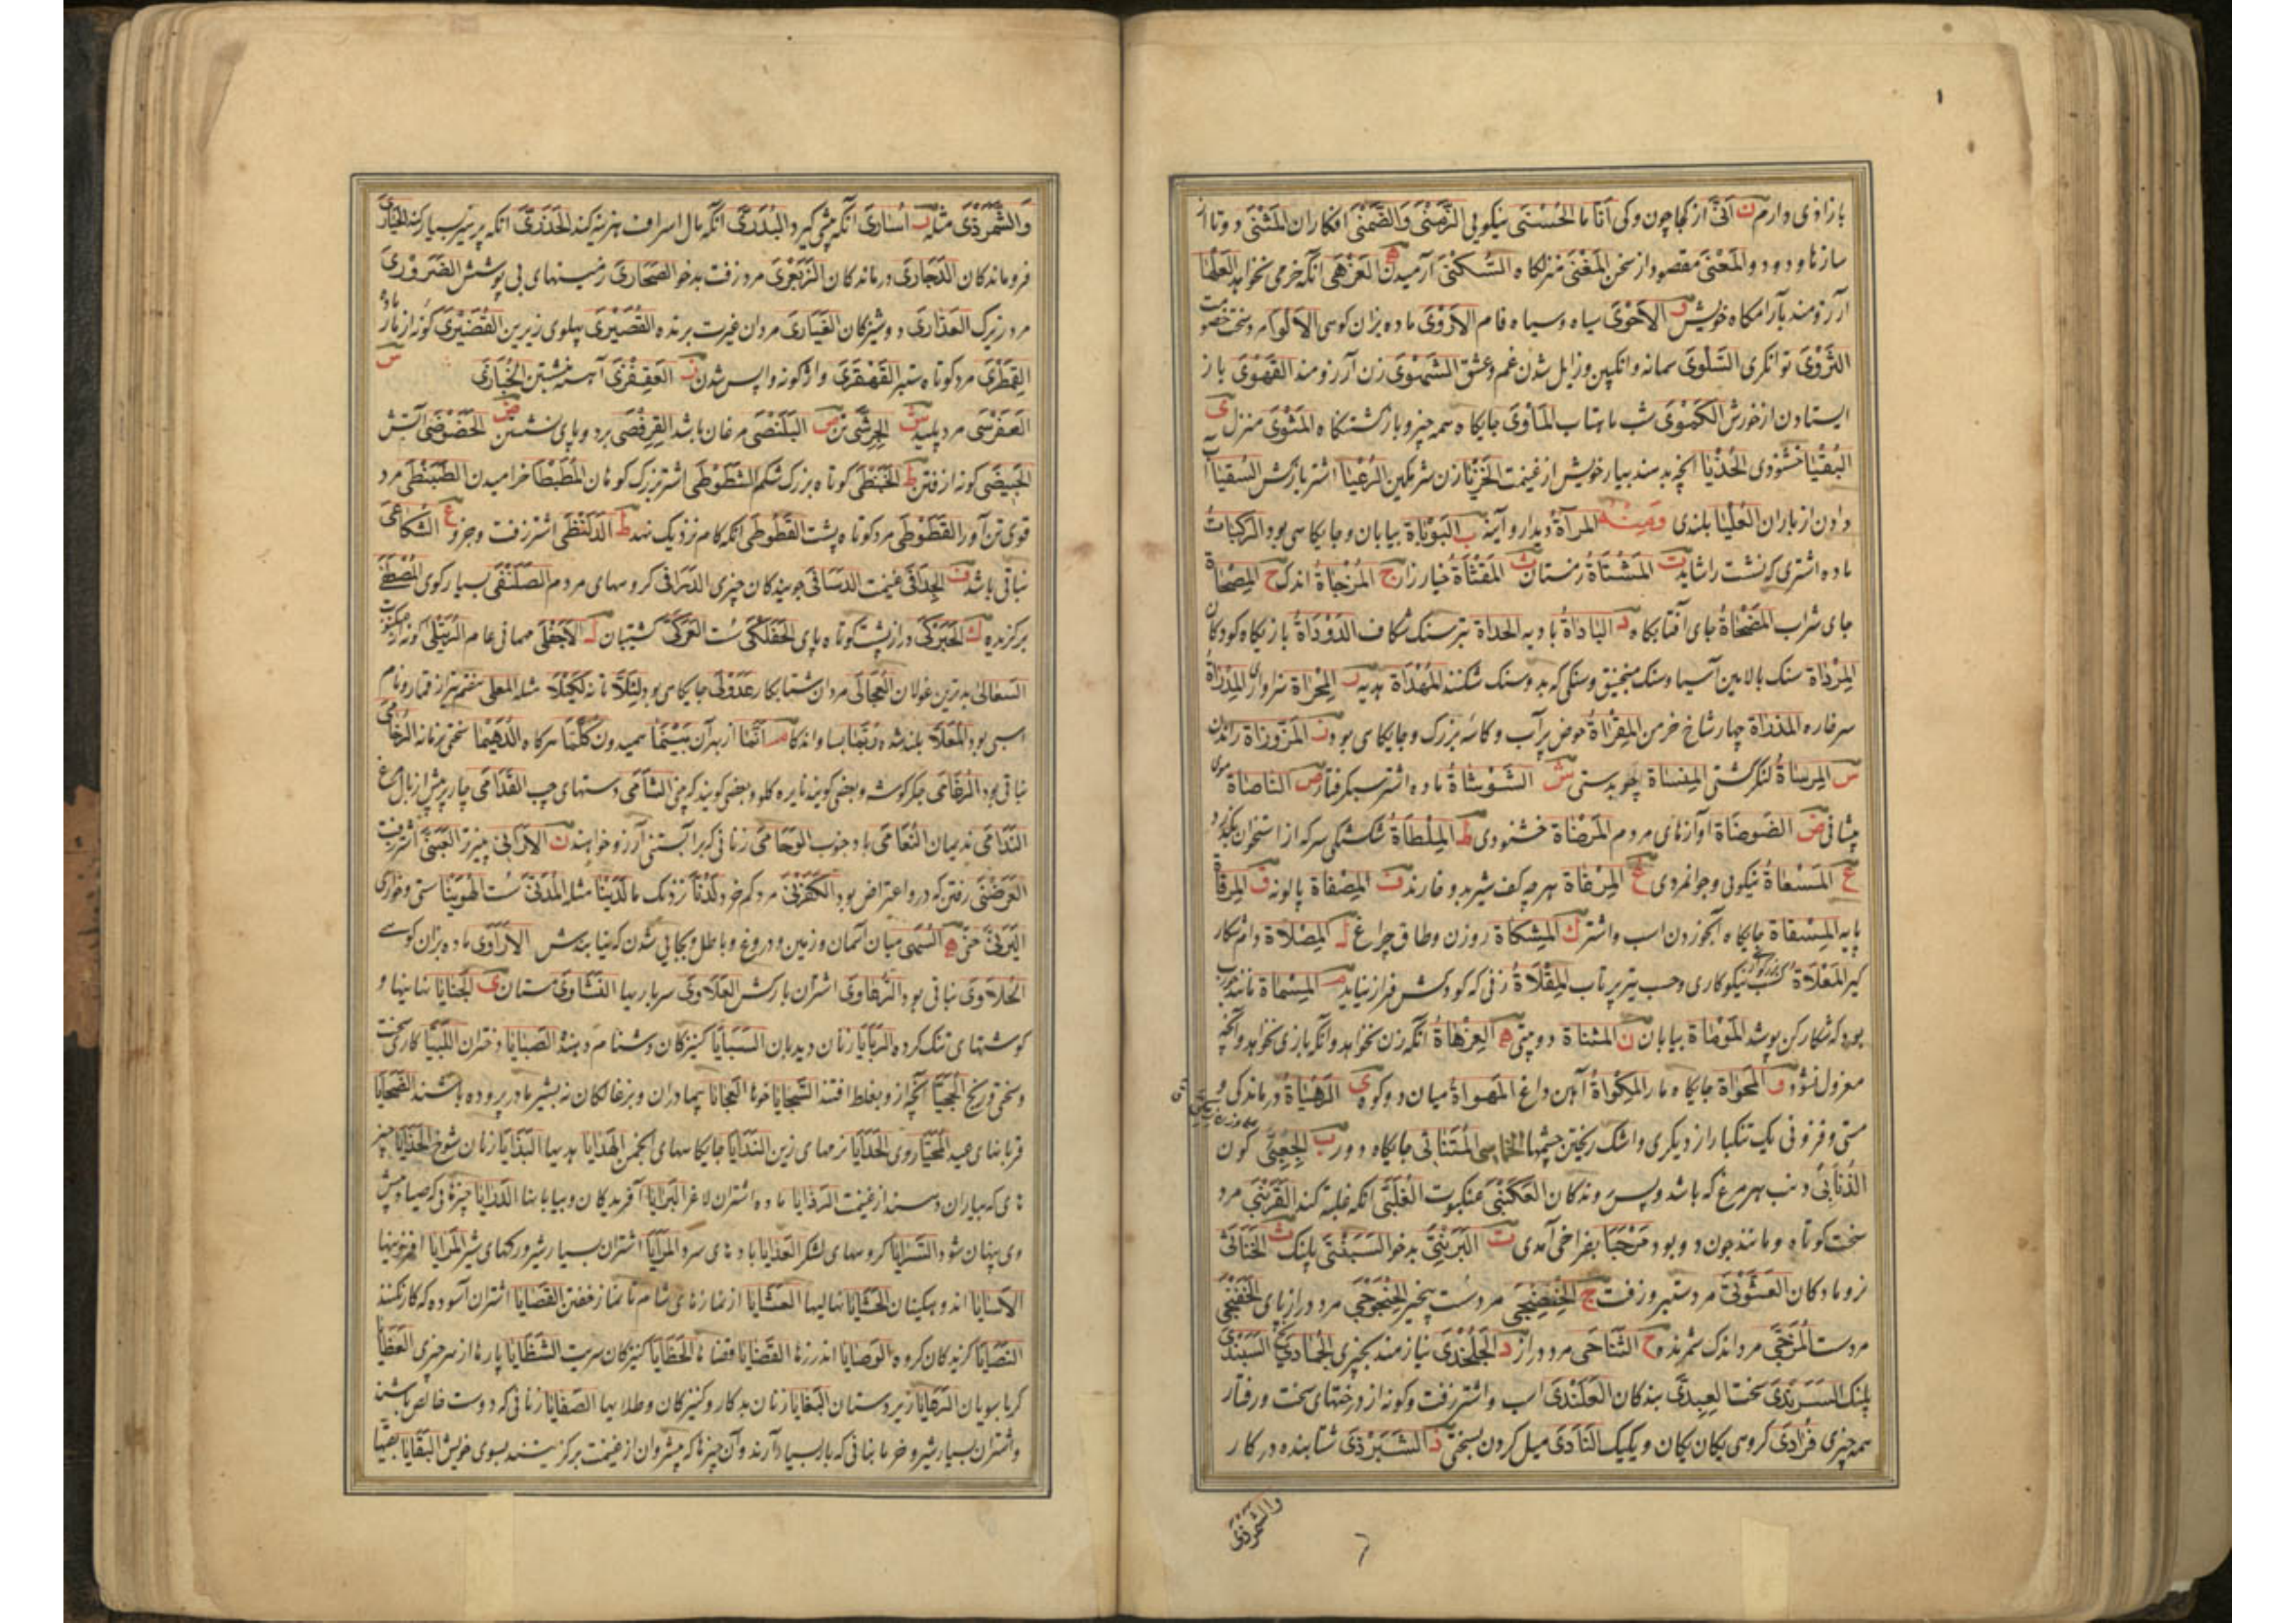 ۱
بازاوی وارم ن انّی از کجا چون و کی آنا ما الحُسْنی نیکویی الزَّمْنی وَالضَّمْنی افکاران المَثْنی دوتا از
سازها و دو دو والمَعْنی مقصود از سخن المَغْنی منزلکاه السُّکْنی آرمیدن ه العَزْهی آنکه خرمی نخواهد
آرزومند بآرامکاه خویش و الاَحْوی سیاه و سیاه فام الاَرْوی ماده بزان کوهی
الثَّرْوی توانکری السَّلْوی سمانه و انکبین و زایل شدن غم و عشق الشَّهْوی زن آرزومند القَهْوی باز
ایستادن از خورش الکَمْوی شب ماهتاب المَأوی جایکاه همه چیز و بازکشتنکاه المَثْوی منزل ی
البُقْیا خشنودی الحُذْیا آنچه بدهند بیار خویش از غنیمت الخَزْیا زن شرمکین الرُّعْیا اشتر بارکش السُّقْیا آب
دادن از باران العُلْیا بلندی وَمِنْهُ المرآة دیدار و آینه ب البَوْباة بیابان و جایکاهی بود
ماده اشتری که نشست را شاید ت المَشْتاة زمستان ث المَقْثاة خیارزار ج المُزْجاة اندک ح المِصْحاة
جای شراب المَضْحاة جای آفتابکاه د البادَاة بادیه الحداة تبر سنک شکاف الدَّوْدَاة بازیکاه کودکان
المِرْدَاة سنک بالایین آسیا و سنک منجنیق و سنکی که بدو سنک شکنند المُهْدَاة هدیه ر المِحْراة سزاوار المِذْرَاة
سرخاره المِدْرَاة چهارشاخ خرمن المِقْرَاة حوض پرآب و کاسهٔ بزرک و جایکاهی بود ز المَزْوزَاة راندن
س المِرساةُ لنکر کشتی المِنساة چوبدستی ش الشَّوْشاةُ ماده اشتر سبکرفتار ص الناصاة موی
پیشانی ض الضَوضاة آوازهای مردم المَرضاة خشنودی ط المِلْطاةُ شکستکی سر که از استخوان بکذرد
ع المَسْعاةُ نیکوئی و جوانمردی غ المِرغاة هرچه کف شیر بدو فارند ف المِصْفاة پالونه ق المِرقاة
پایه المِسقاة جایکاه آبخوردن اسب و اشتر ک المِشکاة روزن و طاق چراغ ل المِصلاة دام شکار
کیر المَعْلاة کسب نیکوکاری و حسب تیر پرتاب المِقْلاةُ زنی که کودکش فراز نیاید م المِسماة
بود که شکارکن پوشد المَوْماة بیابان ن المثناة دومتی ه العِزْهاةُ آنکه زن نخواهد و آنکه بازی نخواهد و آنچه
معزول نشود و المَحْواة جایکاه مار المِکْواةُ آهن داغ المَهواةُ میان دو کوه ی الرَّهْیاة درماندکی و
سستی و فزونی یک تنکبار از دیکری و اشک ریختن چشمها الخماسی المُتَنائی جایکاه دور ب الجِعِبّی کون
الذُّنابی دنب هر مرغ که باشد و پس روندکان العَکَنْبی عنکبوت الغُلُبّی آنکه غلبه کند القَرَنْبی مرد
سخت کوتاه و مانند جون دو بود مَرْحَبا بفراخی آمدی ت البَرَنْتی بدخو السَبَنْتی پلنک ث الخَناثی
نروما دکان العَشَوْثی مرد ستبر و زفت ج الخَفِیضَجی مرد سست بیخیر الخَجَوْجی مرد دراز پای الخَفَنْجی
مرد سست المُزَجّی مرد اندک شمرنده ح الشَّناحی مرد دراز د الجَلَخْدی نیازمند بچیزی الجُمادی السَبَنْدی
پلنک السَرَنْدی سخت العِبِدّی بندکان العَلَنْدی اسب و اشتر زفت و کونهٔ از درختهای سخت و رفتار
همه چیزی فُرادی کروهی یکان یکان و یکیک النَّآدی میل کردن بسختی ذ الشَّبَرْذی شتابنده در کار
والشَّمَرْذی
وَالشَّمَرْذی مثله ر اُساری آنکه پیشی کیرد البُدُرّی آنکه مال اسراف هزینه کند الحَذَرّی آنکه پرهیز بسیار کند
فروماندکان الدَّجاری درماندکان الزَبَعْری مرد زفت بدخو الصَحاری زمینهای بی پوشش الضَروری
مرد زیرک العَذاری دوشیزکان الغَیاری مردان غیرت برنده القُصَیْری پهلوی زیرین القُضَیْری کونهٔ از مار
القِمَطْری مرد کوتاه ستبر القَهْقَری واژکونه واپس شدن ز العَقِفْزی آهسته نشستن الخُبّازی س
العَفَرْسی مرد پلید ش الجِرِشّی تن ص البَلَنْصی مرغان باشد القِرِفْصی بر دو پای نشستن ض الحَضَوْضی آتش
الجَبیضی کونهٔ از رفتن ط الحَبَنْطی کوتاه بزرک شکم الشَّطَوْطی اشتر بزرک کوهان المُطَیْطا خرامیدن الضَّبَنْطی مرد
قوی تن آور القَطَوْطی مرد کوتاه پشت القَطُوطی آنکه کام نزدیک نهد ظ الدَلَنْظی اشتر زفت و جز و ع الشُکاعی
نباتی باشد ف الجِدافی غنیمت الدسافی جویندکان چیزی الدَرافی کروههای مردم الصَلَنْفی بسیار کوی المُصْطَفی
برکزیده ک الحَبَرْکی دراز پشت کوتاه پای الحَفَلْکی سست العَرَکی کشتیبان ل الاَجْفَلی مهمانی عام
السَعالی بدترین غولان العُجالی مردان شتابکار عَدَوْلی جایکاهی بود لِئَلّا تا نه لِکَیْلا مثله المعلی هفتم تیر از قمار و نام
اسپی بود المُعَلّا بلند شده رُبَّما بسا و اندکا م اَنّما از بهر آن بَیْنَما همیدون کُلَّما هرکاه الدُهَیْما سختی زمانه الرُخامی
نباتی بود الرُغامی جکر کوشه و بعضی کویند نایره کلو و بعضی کویند کرمی الشآمی دستهای چپ القُدامی چار پر پیش از بال مرغ
النَّدامی ندیمان النُعامی باد جنوب الوَحامی زنانی که بر آبستنی آرزو خواهند ن الاُرانی پنیرتر العَبَنّی اشتر زفت
العَرَضْنی رفتنی که درو اعتراض بود الکَهْرَنی مرد کم خرد لَدُنّا نزدیک ما لَدَیْنا مثله المُدَنّی سست الهُوَیْنا سستی و خواری
الیَرَنّی حنّی ه السُمَّهی میان آسمان و زمین و دروغ و باطل و بجایی شدن که نیابندش الاَراوی ماده بزان کوهی
الحُلاوی نباتی بود الرَّهاوی اشتران بارکش العَلاوی سربارها النَشاوی مستان ی الجَنایا
کوشتهای تنک کرده الرَبایا زنان و دیدبان السَبایا کنیزکان و دشنام دهنده الصَبایا دختران اللُبَیّا کاری سخت
و سختی و رنج الحُجَیّا آنچه از و بغلط افتند السَّجایا خوها العَجایا
قربانهای عید المُحَیّا روی الحَدایا نرمهای زین النَدایا جایکاههای انجمن الهَدایا هدیها البَذایا زنان شوخ
های که بیاران دهند از غنیمت الرَذایا ماده اشتران لاغر البَرایا آفریدکان و بیابانها الدَرایا چیزهائی که صیاد پیش
وی پنهان شود السَّرایا کروههای لشکر العَرایا بادهای سرد المَرایا اشتران بسیار شیر و رکهای شیر المَزایا افزونیها
الاَسایا اندوهکینان الحَشایا نهالیها العَشایا از نمازهای شام تا نماز خفتن القَصایا اشتران آسوده که کار نکنند
النَصایا کزیدکان کروه الوَصایا اندرزها القَضایا قضاها الحَظایا کنیزکان سریت الشَظایا پارها از هر چیزی العَظایا
کرباسویان الرَعایا زیردستان البَغایا زنان بدکار و کنیزکان و طلایها الصَفایا زنانی که دوست خالص باشند
و اشتران بسیار شیر و خرمابنانی که بار بسیار آرند و آن چیزها که پیشروان از غنیمت برکزینند بسوی خویش البَقایا بقیتها